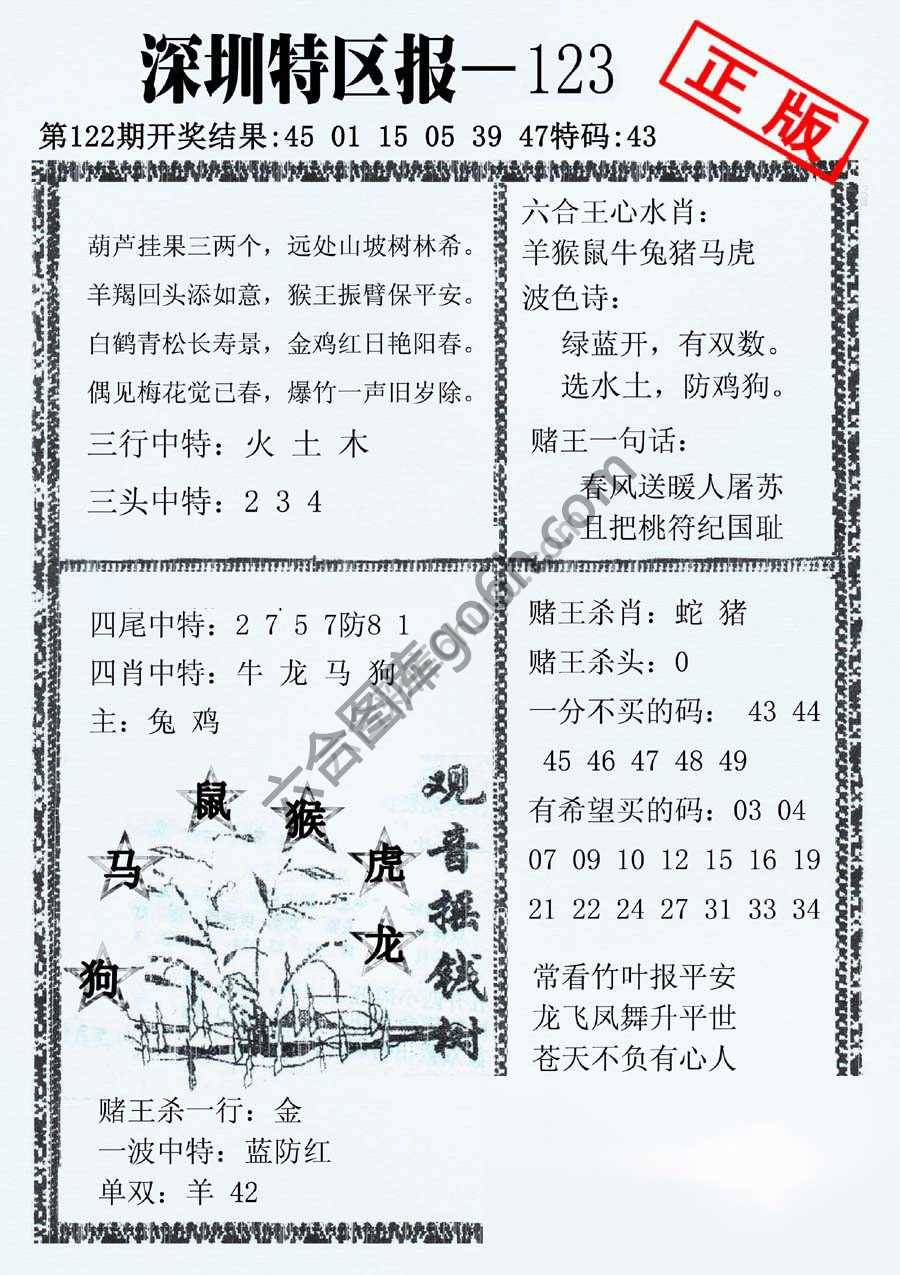 深圳特区报—123
正版
第122期开奖结果:45 01 15 05 39 47特码:43
葫芦挂果三两个，远处山坡树林希。
羊羯回头添如意，猴王振臂保平安。
白鹤青松长寿景，金鸡红日艳阳春。
偶见梅花觉已春，爆竹一声旧岁除。
三行中特：火 土 木
三头中特：2 3 4
六合王心水肖：
羊猴鼠牛兔猪马虎
波色诗：
绿蓝开，有双数。
选水土，防鸡狗。
赌王一句话：
春风送暖人屠苏
且把桃符纪国耻
四尾中特：2 7 5 7防8 1
四肖中特：牛 龙 马 狗
主：兔 鸡
鼠
猴
马
虎
龙
狗
观音摇钱树
赌王杀一行：金
一波中特：蓝防红
单双：羊 42
赌王杀肖：蛇 猪
赌王杀头：0
一分不买的码： 43 44
45 46 47 48 49
有希望买的码：03 04
07 09 10 12 15 16 19
21 22 24 27 31 33 34
常看竹叶报平安
龙飞凤舞升平世
苍天不负有心人